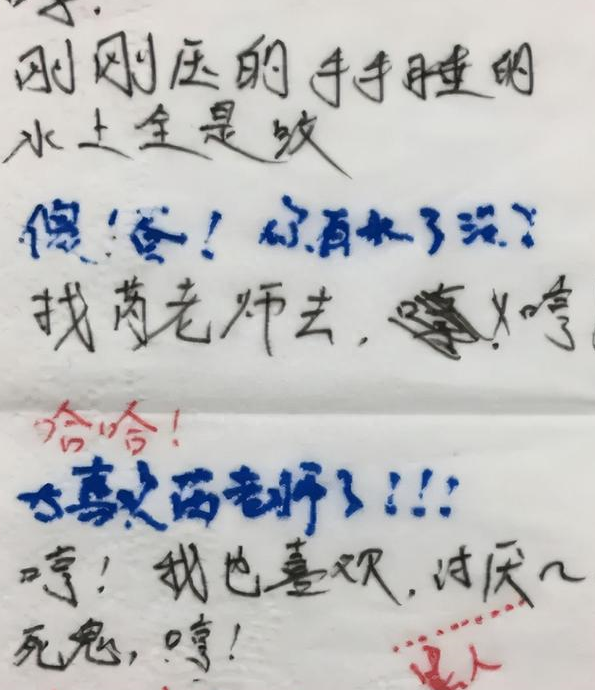 刚刚压的手手睡的
水上全是咬
傻！爸！你有水了没？
找芮老师去，哼
哈哈！
太喜欢芮老师了！！！
哼！我也喜欢，讨厌~
死鬼，哼！